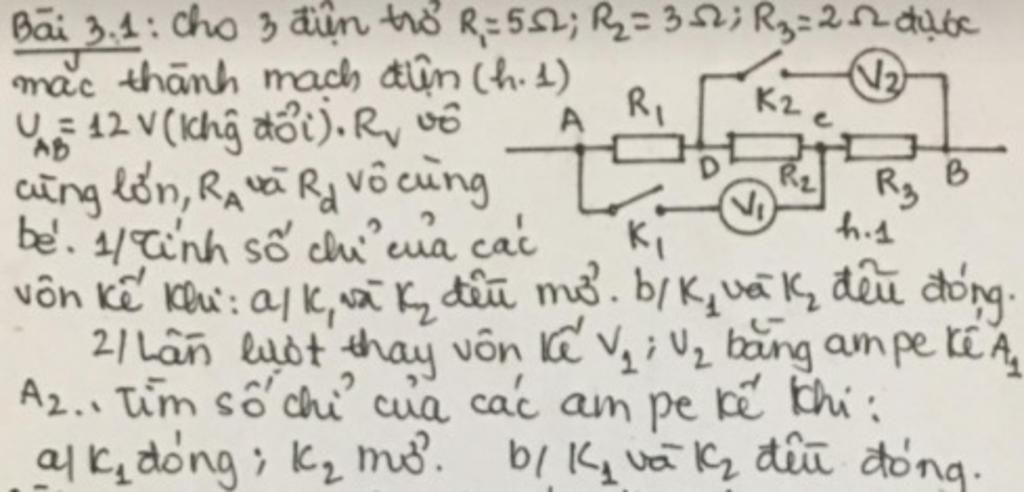 Bài 3.1: Cho 3 điện trở R₁=5Ω; R₂=3Ω; R₃=2Ω được
mắc thành mạch điện (h.1)
U_AB=12V(khg đổi). R_V vô
cùng lớn, R_A và R_d vô cùng
bé. 1/ Tính số chỉ của các
vôn kế khi: a/ K₁ và K₂ đều mở. b/ K₁ và K₂ đều đóng.
2/ Lần lượt thay vôn kế V₁; V₂ bằng ampe kế A₁
A₂.. Tìm số chỉ của các am pe kế khi:
a/ K₁ đóng; K₂ mở. b/ K₁ và K₂ đều đóng.
K₂ V₂
A R₁ D R₂ C R₃ B
K₁ V₁
h.1